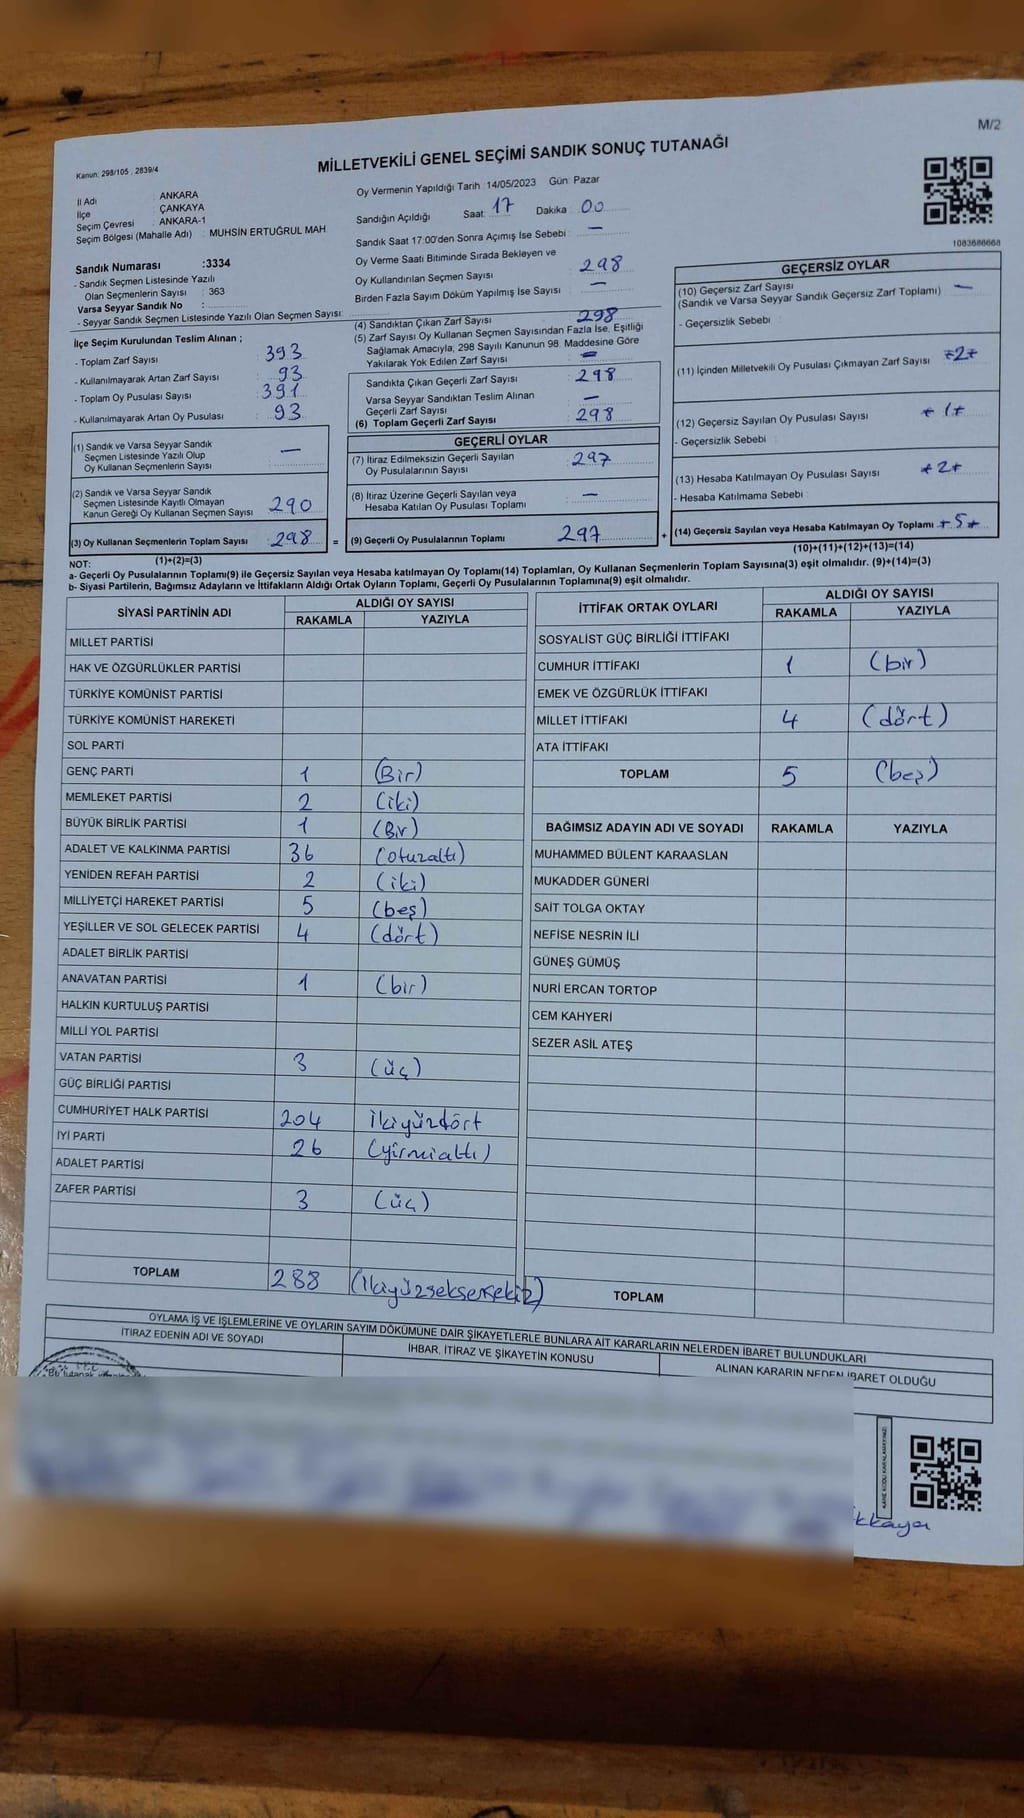 M/2
Kanun: 298/105 , 2839/4
MİLLETVEKİLİ GENEL SEÇİMİ SANDIK SONUÇ TUTANAĞI
İl Adı : ANKARA
İlçe : ÇANKAYA
Seçim Çevresi : ANKARA-1
Seçim Bölgesi (Mahalle Adı) : MUHSİN ERTUĞRUL MAH
Sandık Numarası :3334
- Sandık Seçmen Listesinde Yazılı
Olan Seçmenlerin Sayısı : 363
Varsa Seyyar Sandık No :
- Seyyar Sandık Seçmen Listesinde Yazılı Olan Seçmen Sayısı:
Oy Vermenin Yapıldığı Tarih :14/05/2023 Gün: Pazar
Sandığın Açıldığı Saat: 17 Dakika : 00
Sandık Saat 17:00'den Sonra Açımış İse Sebebi : —
Oy Verme Saati Bitiminde Sırada Bekleyen ve
Oy Kullandırılan Seçmen Sayısı : 298
Birden Fazla Sayım Döküm Yapılmış İse Sayısı : —
1083686668
İlçe Seçim Kurulundan Teslim Alınan ;
- Toplam Zarf Sayısı : 393
- Kullanılmayarak Artan Zarf Sayısı : 93
- Toplam Oy Pusulası Sayısı : 391
- Kullanılmayarak Artan Oy Pusulası : 93
(1) Sandık ve Varsa Seyyar Sandık
Seçmen Listesinde Yazılı Olup
Oy Kullanan Seçmenlerin Sayısı : —
(2) Sandık ve Varsa Seyyar Sandık
Seçmen Listesinde Kayıtlı Olmayan
Kanun Gereği Oy Kullanan Seçmen Sayısı : 290
(3) Oy Kullanan Seçmenlerin Toplam Sayısı : 298 =
(1)+(2)=(3)
(4) Sandıktan Çıkan Zarf Sayısı : 298
(5) Zarf Sayısı Oy Kullanan Seçmen Sayısından Fazla İse, Eşitliği
Sağlamak Amacıyla, 298 Sayılı Kanunun 98. Maddesine Göre
Yakılarak Yok Edilen Zarf Sayısı : —
Sandıkta Çıkan Geçerli Zarf Sayısı : 298
Varsa Seyyar Sandıktan Teslim Alınan
Geçerli Zarf Sayısı : —
(6) Toplam Geçerli Zarf Sayısı : 298
GEÇERLİ OYLAR
(7) İtiraz Edilmeksizin Geçerli Sayılan
Oy Pusulalarının Sayısı : 297
(8) İtiraz Üzerine Geçerli Sayılan veya
Hesaba Katılan Oy Pusulası Toplamı : —
(9) Geçerli Oy Pusulalarının Toplamı : 297 +
GEÇERSİZ OYLAR
(10) Geçersiz Zarf Sayısı
(Sandık ve Varsa Seyyar Sandık Geçersiz Zarf Toplamı) : —
- Geçersizlik Sebebi :
(11) İçinden Milletvekili Oy Pusulası Çıkmayan Zarf Sayısı : +2+
(12) Geçersiz Sayılan Oy Pusulası Sayısı : +1+
- Geçersizlik Sebebi :
(13) Hesaba Katılmayan Oy Pusulası Sayısı : +2+
- Hesaba Katılmama Sebebi :
(14) Geçersiz Sayılan veya Hesaba Katılmayan Oy Toplamı : +5+
(10)+(11)+(12)+(13)=(14)
NOT:
a- Geçerli Oy Pusulalarının Toplamı(9) ile Geçersiz Sayılan veya Hesaba katılmayan Oy Toplamı(14) Toplamları, Oy Kullanan Seçmenlerin Toplam Sayısına(3) eşit olmalıdır. (9)+(14)=(3)
b- Siyasi Partilerin, Bağımsız Adayların ve İttifakların Aldığı Ortak Oyların Toplamı, Geçerli Oy Pusulalarının Toplamına(9) eşit olmalıdır.
SİYASİ PARTİNİN ADI ALDIĞI OY SAYISI
RAKAMLA YAZIYLA
MİLLET PARTİSİ
HAK VE ÖZGÜRLÜKLER PARTİSİ
TÜRKİYE KOMÜNİST PARTİSİ
TÜRKİYE KOMÜNİST HAREKETİ
SOL PARTİ
GENÇ PARTİ 1 (Bir)
MEMLEKET PARTİSİ 2 (iki)
BÜYÜK BİRLİK PARTİSİ 1 (Bir)
ADALET VE KALKINMA PARTİSİ 36 (otuzaltı)
YENİDEN REFAH PARTİSİ 2 (iki)
MİLLİYETÇİ HAREKET PARTİSİ 5 (beş)
YEŞİLLER VE SOL GELECEK PARTİSİ 4 (dört)
ADALET BİRLİK PARTİSİ
ANAVATAN PARTİSİ 1 (bir)
HALKIN KURTULUŞ PARTİSİ
MİLLİ YOL PARTİSİ
VATAN PARTİSİ 3 (üç)
GÜÇ BİRLİĞİ PARTİSİ
CUMHURİYET HALK PARTİSİ 204 İkiyüzdört
İYİ PARTİ 26 (yirmialtı)
ADALET PARTİSİ
ZAFER PARTİSİ 3 (üç)
TOPLAM 288 (İkiyüzseksensekiz)
İTTİFAK ORTAK OYLARI ALDIĞI OY SAYISI
RAKAMLA YAZIYLA
SOSYALİST GÜÇ BİRLİĞİ İTTİFAKI
CUMHUR İTTİFAKI 1 (bir)
EMEK VE ÖZGÜRLÜK İTTİFAKI
MİLLET İTTİFAKI 4 (dört)
ATA İTTİFAKI
TOPLAM 5 (beş)
BAĞIMSIZ ADAYIN ADI VE SOYADI RAKAMLA YAZIYLA
MUHAMMED BÜLENT KARAASLAN
MUKADDER GÜNERİ
SAİT TOLGA OKTAY
NEFİSE NESRİN İLİ
GÜNEŞ GÜMÜŞ
NURİ ERCAN TORTOP
CEM KAHYERİ
SEZER ASİL ATEŞ
TOPLAM
OYLAMA İŞ VE İŞLEMLERİNE VE OYLARIN SAYIM DÖKÜMÜNE DAİR ŞİKAYETLERLE BUNLARA AİT KARARLARIN NELERDEN İBARET BULUNDUKLARI
İTİRAZ EDENİN ADI VE SOYADI
İHBAR, İTİRAZ VE ŞİKAYETİN KONUSU
ALINAN KARARIN NEDEN İBARET OLDUĞU
KARE KODU KARALAMAYINIZ
kkaya